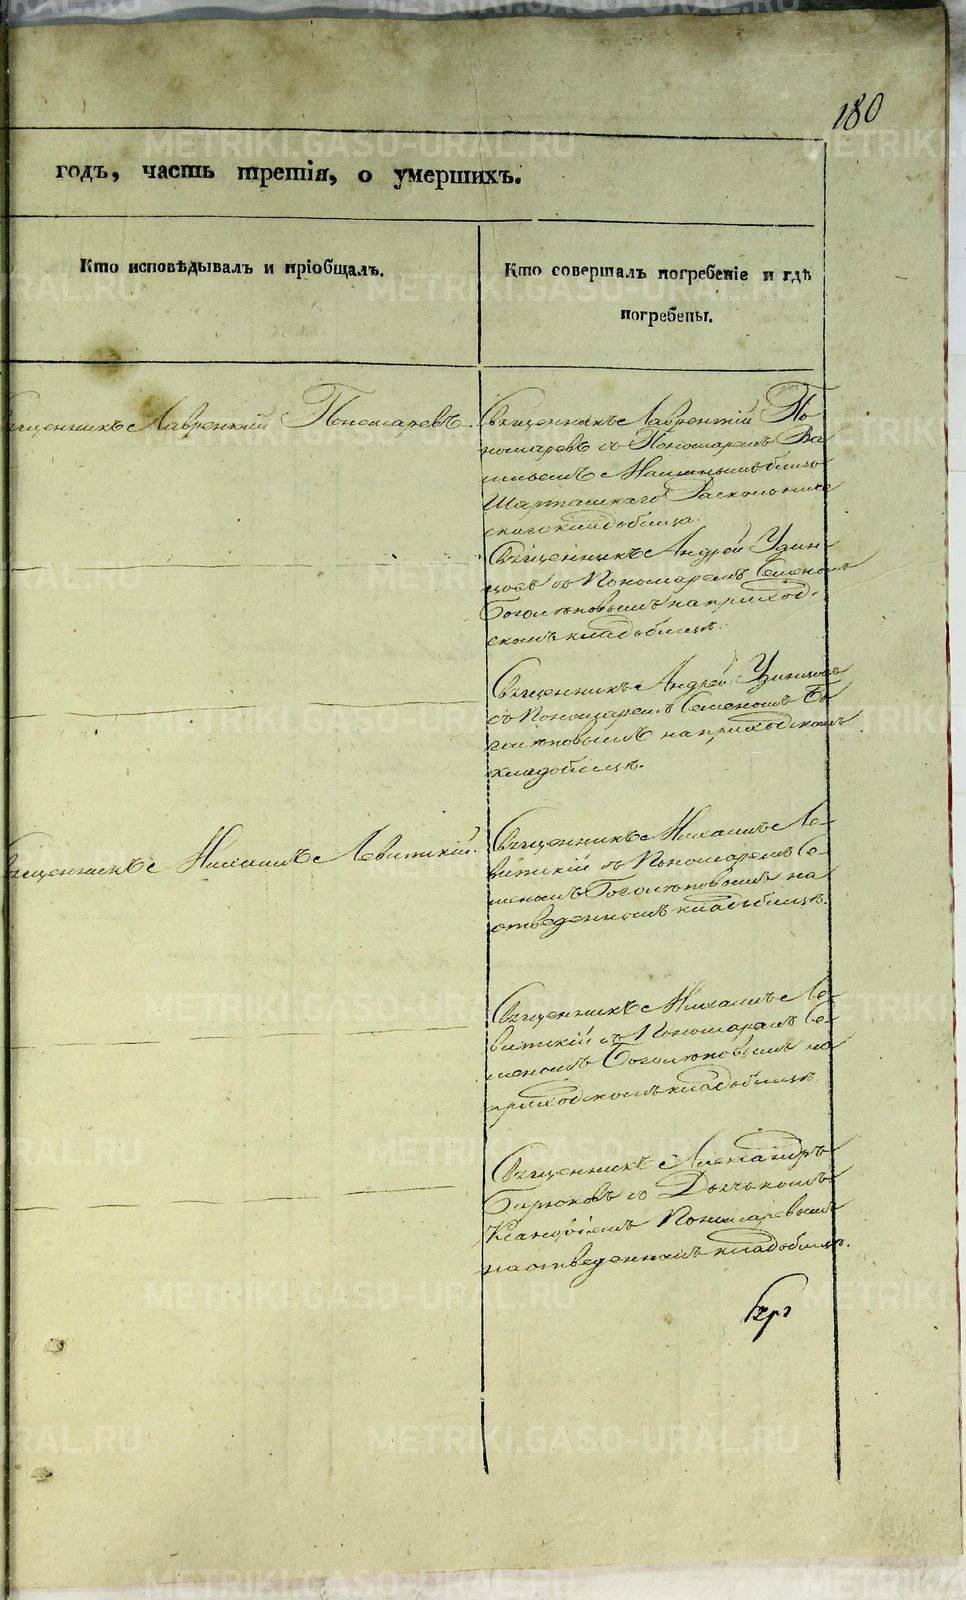 180
годъ, часть третія, о умершихъ.
Кто исповѣдывалъ и пріобщалъ.
Кто совершалъ погребеніе и гдѣ
погребены.
Священникъ Лаврентій Пономаревъ.
Священникъ Лаврентій По
номаревъ съ Пономаремъ Ва
Шарташскаго Расколниче
скаго кладбища.
Священникъ Андрей Удин
цовъ съ Пономаремъ Семеномъ
Боголюбовымъ на приход
скомъ кладбищѣ.
Священникъ Андрей Удинцовъ
съ Пономаремъ Семеномъ Бо
голюбовымъ на приходскомъ
кладбищѣ.
Священникъ Михаилъ Левитскій.
Священникъ Михаилъ Ле-
витскій съ Пономаремъ Се-
меномъ Боголюбовымъ на
отведенномъ кладбищѣ.
Священникъ Михаилъ Ле-
витскій съ Пономаремъ Се-
меномъ Боголюбовымъ на
приходскомъ кладбищѣ.
Священникъ Александръ
Бирюковъ съ Дьячкомъ
Клавдіемъ Пономаревымъ
на отведенномъ кладбищѣ.
METRIKI.GASO-URAL.RU